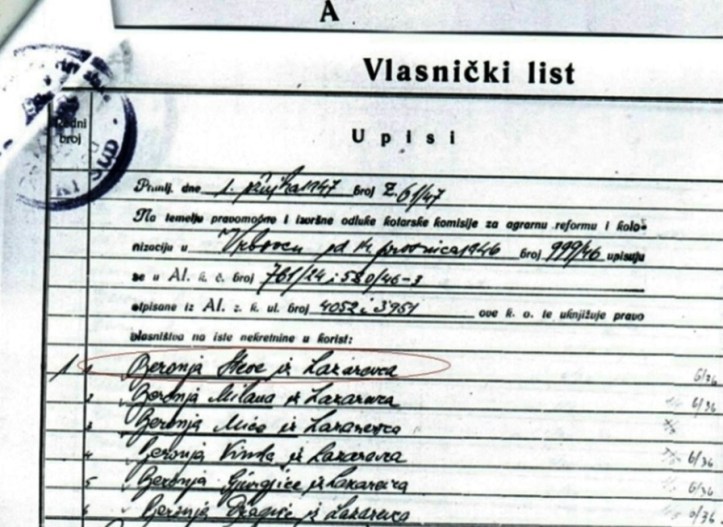 A
Vlasnički list
Redni broj
Upisi
SUD
Primlj. dne 1. ožujka 1947 broj Z 61/47
Na temelju pravomoćne i izvršne odluke kotarske komisije za agrarnu reformu i kolo-
nizaciju u Vrbovcu od 14 prosinca 1946 broj 999/46 upisuju
se u AI. k. č. broj 761/24 i 580/46-2
otpisane iz AI. z. k. ul. broj 4052 i 3951 ove k. o. te uknjižuje pravo
vlasništva na iste nekretnine u korist:
1 1 Beronja Steve iz Lazarevca 6/36
2 Beronja Milana iz Lazarevca 6/36
3 Beronja Mićo iz Lazarevca
4 Beronja iz Lazarevca 6/36
5 Beronja Gjurgjice iz Lazarevca 6/36
6 Beronja Dragice iz Lazarevca 6/36